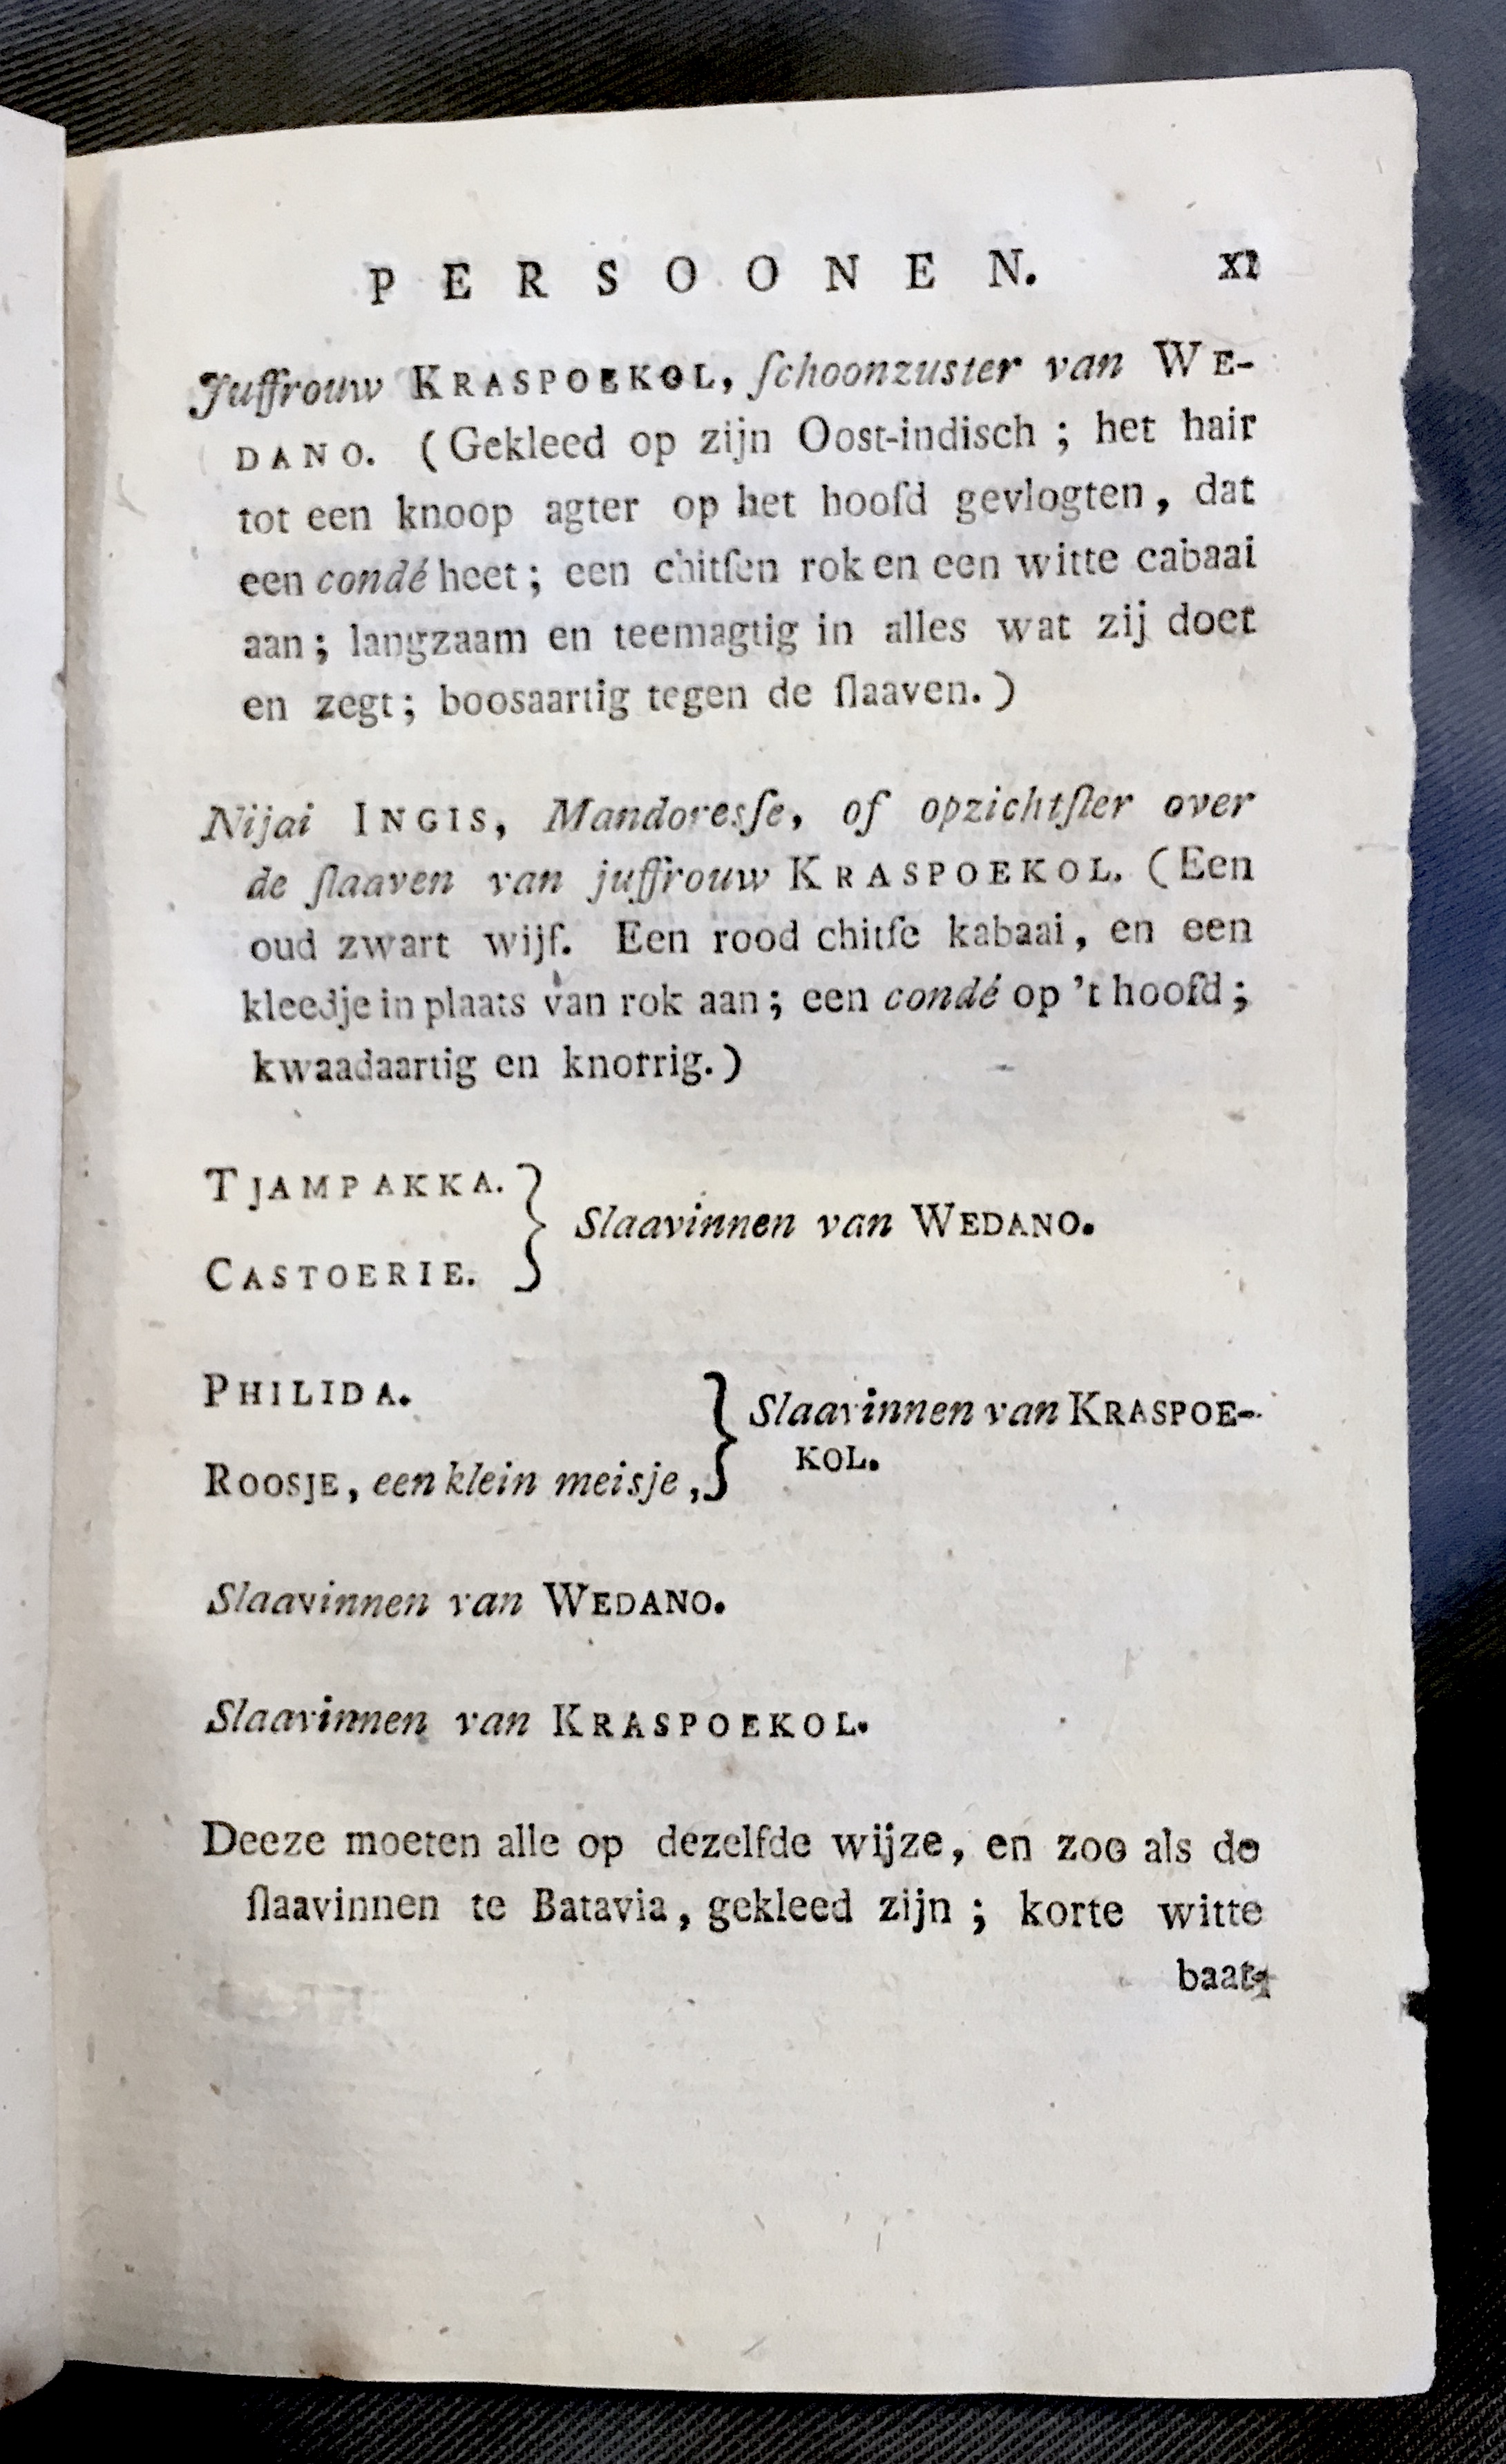 PERSOONEN. XI
Juffrouw KRASPOEKOL, ſchoonzuster van WE-
DANO. (Gekleed op zijn Oost-indisch; het hair
tot een knoop agter op het hoofd gevlogten, dat
een condé heet; een chitſen rok en een witte cabaai
aan; langzaam en teemagtig in alles wat zij doet
en zegt; boosaartig tegen de ſlaaven.)
Nijai INGIS, Mandoresſe, of opzichtſter over
de ſlaaven van juffrouw KRASPOEKOL. (Een
oud zwart wijf. Een rood chitſe kabaai, en een
kleedje in plaats van rok aan; een condé op 't hoofd;
kwaadaartig en knorrig.)
TJAMPAKKA.
CASTOERIE. } Slaavinnen van WEDANO.
PHILIDA.
ROOSJE, een klein meisje, } Slaavinnen van KRASPOE-
KOL.
Slaavinnen van WEDANO.
Slaavinnen van KRASPOEKOL.
Deeze moeten alle op dezelfde wijze, en zoo als de
ſlaavinnen te Batavia, gekleed zijn; korte witte